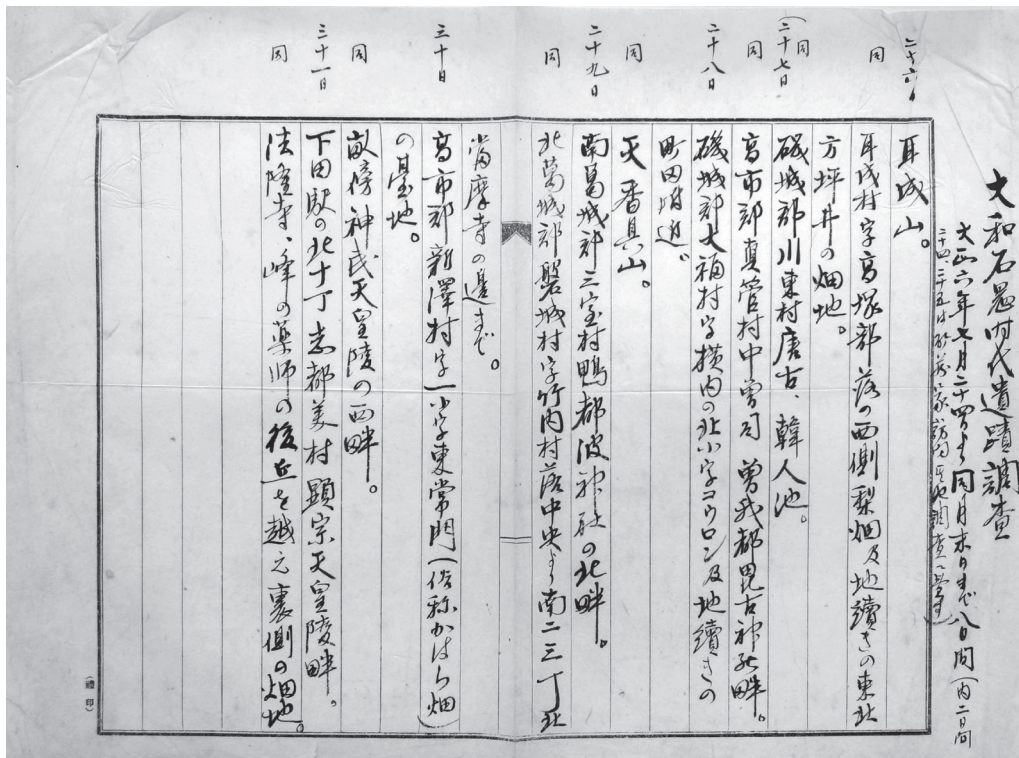 大和石器時代遺蹟調査
大正六年七月二十四日より同月末日まで八日間(内二日間
二十四、二十五は
二十六、
耳成山。
同
耳成村字高塚部落の西側梨畑及地續きの東北
方坪井の畑地。
同
(二十七日
磯城郡川東村唐古、韓人池。
同
高市郡真菅村中曽司 曽我都毘古神社畔。
二十八日
磯城郡大福村字横内の北小字コウロン及地續きの
町田附近。
同
天香具山。
二十九日
南葛城郡三室村鴨都波神社の北畔。
同
北葛城郡磐城村字竹内村落中央より南二三丁北
當摩寺の邊まで。
三十日
高市郡新澤村字一小字東常門(俗称かはら畑)
の臺地。
同
畝傍神武天皇陵の西畔。
三十一日
下田駅の北十丁志都美村 顕宗天皇陵畔。
同
法隆寺、峰の薬師の後丘を越え裏側の畑地。